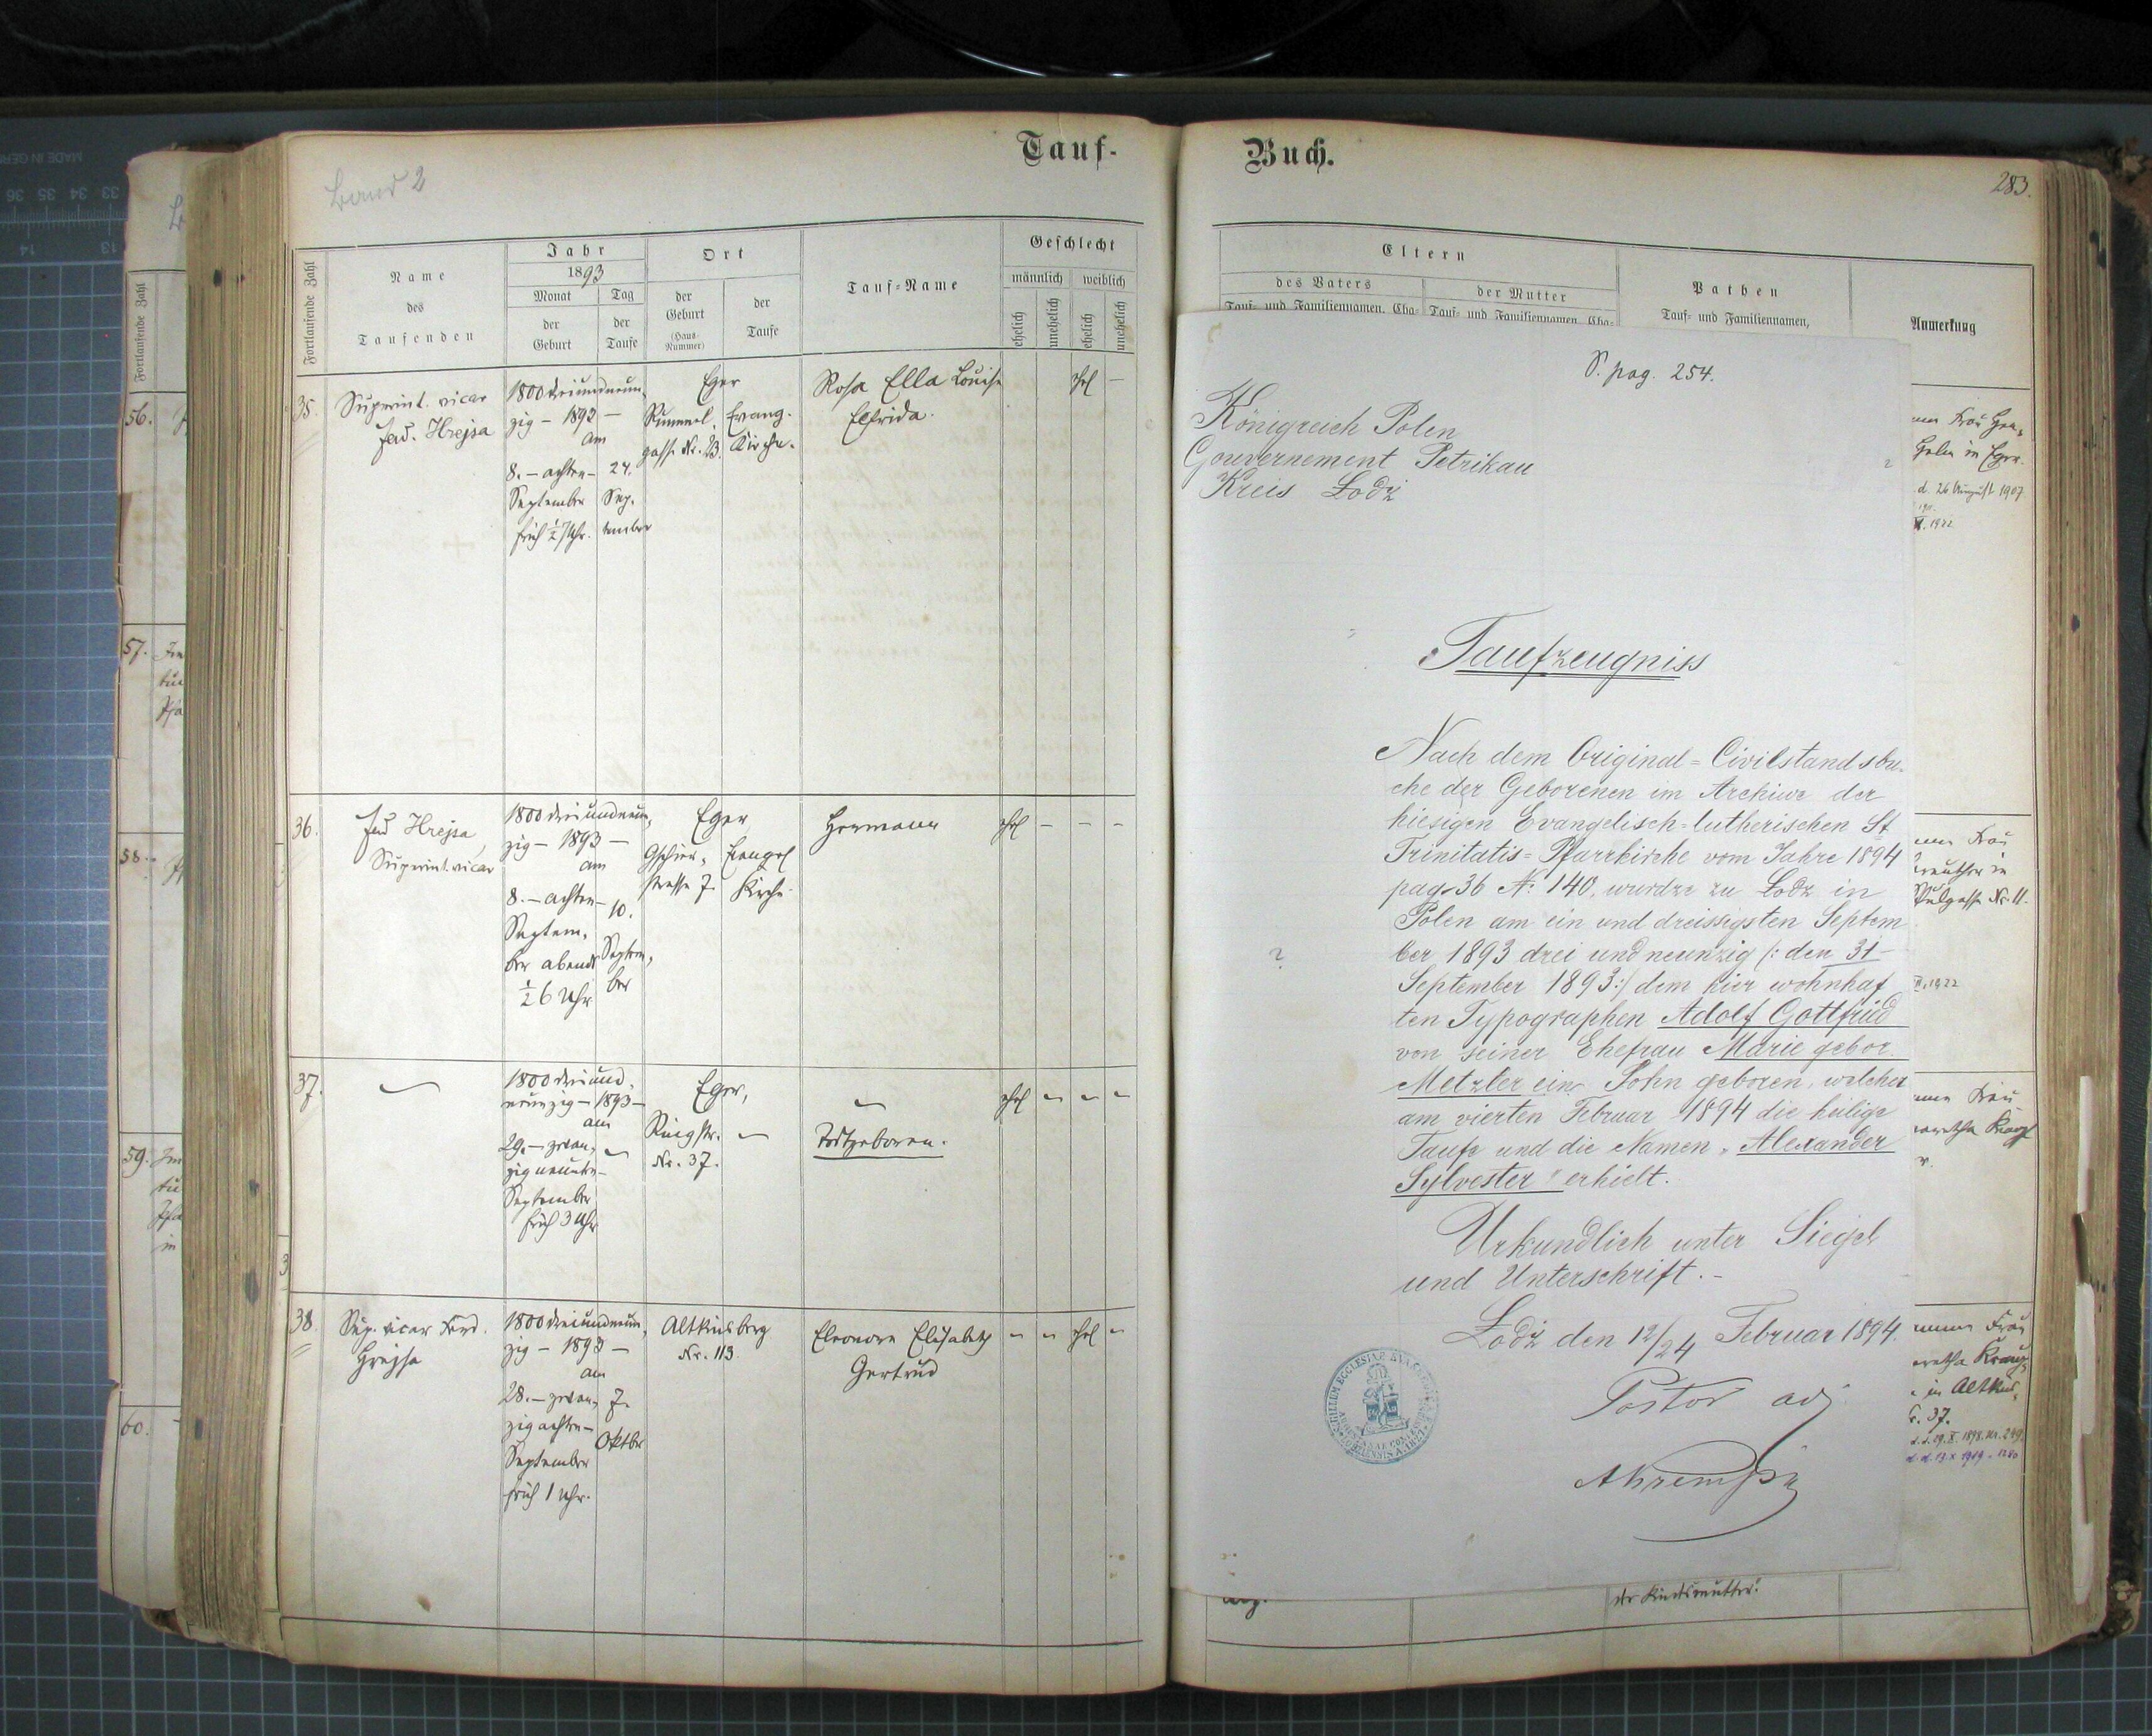 Band 2
Tauf-
Fortlaufende Zahl
Name
des
Taufenden
Jahr
1893
Monat
der
Geburt
Tag
der
Taufe
Ort
der
Geburt
(Haus-
Nummer)
der
Taufe
Tauf-Name
Geschlecht
männlich
weiblich
ehelich
unehelich
ehelich
unehelich
35.
Superint. vicar
Ferd. Hrejsa
1800 dreiundneun,
zig - 1893 -
am
8. - achten -
September
früh ½7 Uhr.
24.
Sep.
tember
Eger
Rummel,
gasse Nr. 23.
Evang.
Kirche.
Rosa Ella Louise
Elfrida.
ehel
36.
Ferd Hrejsa,
Superint. vicar
1800 dreiundneun,
zig - 1893 -
am
8. - achten -
Septem,
ber abends
½6 Uhr
10.
Septem,
ber
Eger
Gschier,
strasse 7.
Evangel
Kirche.
Hermann
ehel - - -
37.
1800 dreiund,
neunzig - 1893 -
am
29. - zwan,
zigneunten -
September
früh 3 Uhr
Eger,
Ringstr.
Nr. 37.
Todtgeboren.
ehel - - -
38.
Sup. vicar Ferd.
Hrejsa
1800 dreiundneun,
zig - 1893 -
am
28. - zwan,
zigachten -
September
früh 1 Uhr.
7.
Oktbr
Altkinsberg
Nr. 113.
Eleonora Elisabeth
Gertrud
- - ehel -
56.
57.
58.
59.
60.
Buch.
283.
Eltern
des Vaters
Tauf- und Familiennamen, Cha-
der Mutter
Tauf- und Familiennamen, Cha-
Pathen
Tauf- und Familiennamen,
Anmerkung
S. pag. 254.
Königreich Polen
Gouvernement Petrikau
Kreis Lodz
Taufzeugniss
Nach dem Original=Civilstandsbu-
che der Geborenen im Archive der
hiesigen Evangelisch=lutherischen St
Trinitatis=Pfarrkirche vom Jahre 1894
pag. 36 N: 140, wurde zu Lodz in
Polen am ein und dreissigsten Septem
ber 1893 drei und neunzig (: den 31-
September 1893:) dem hier wohnhaf
ten Typographen Adolf Gottfried
von seiner Ehefrau Marie gebor.
Metzler ein Sohn geboren, welcher
am vierten Februar 1894 die heilige
Taufe und die Namen „Alexander
Sylvester" erhielt.
Urkundlich unter Siegel
und Unterschrift.-
Lodz den 12/24 Februar 1894.
Pastor adj
in Eger.
d. 26 August 1907
1922
Nr. 11.
1922
in Altkins,
37.
d. d. 29. X. 1898. Nr. 249
der Kindsmutter.